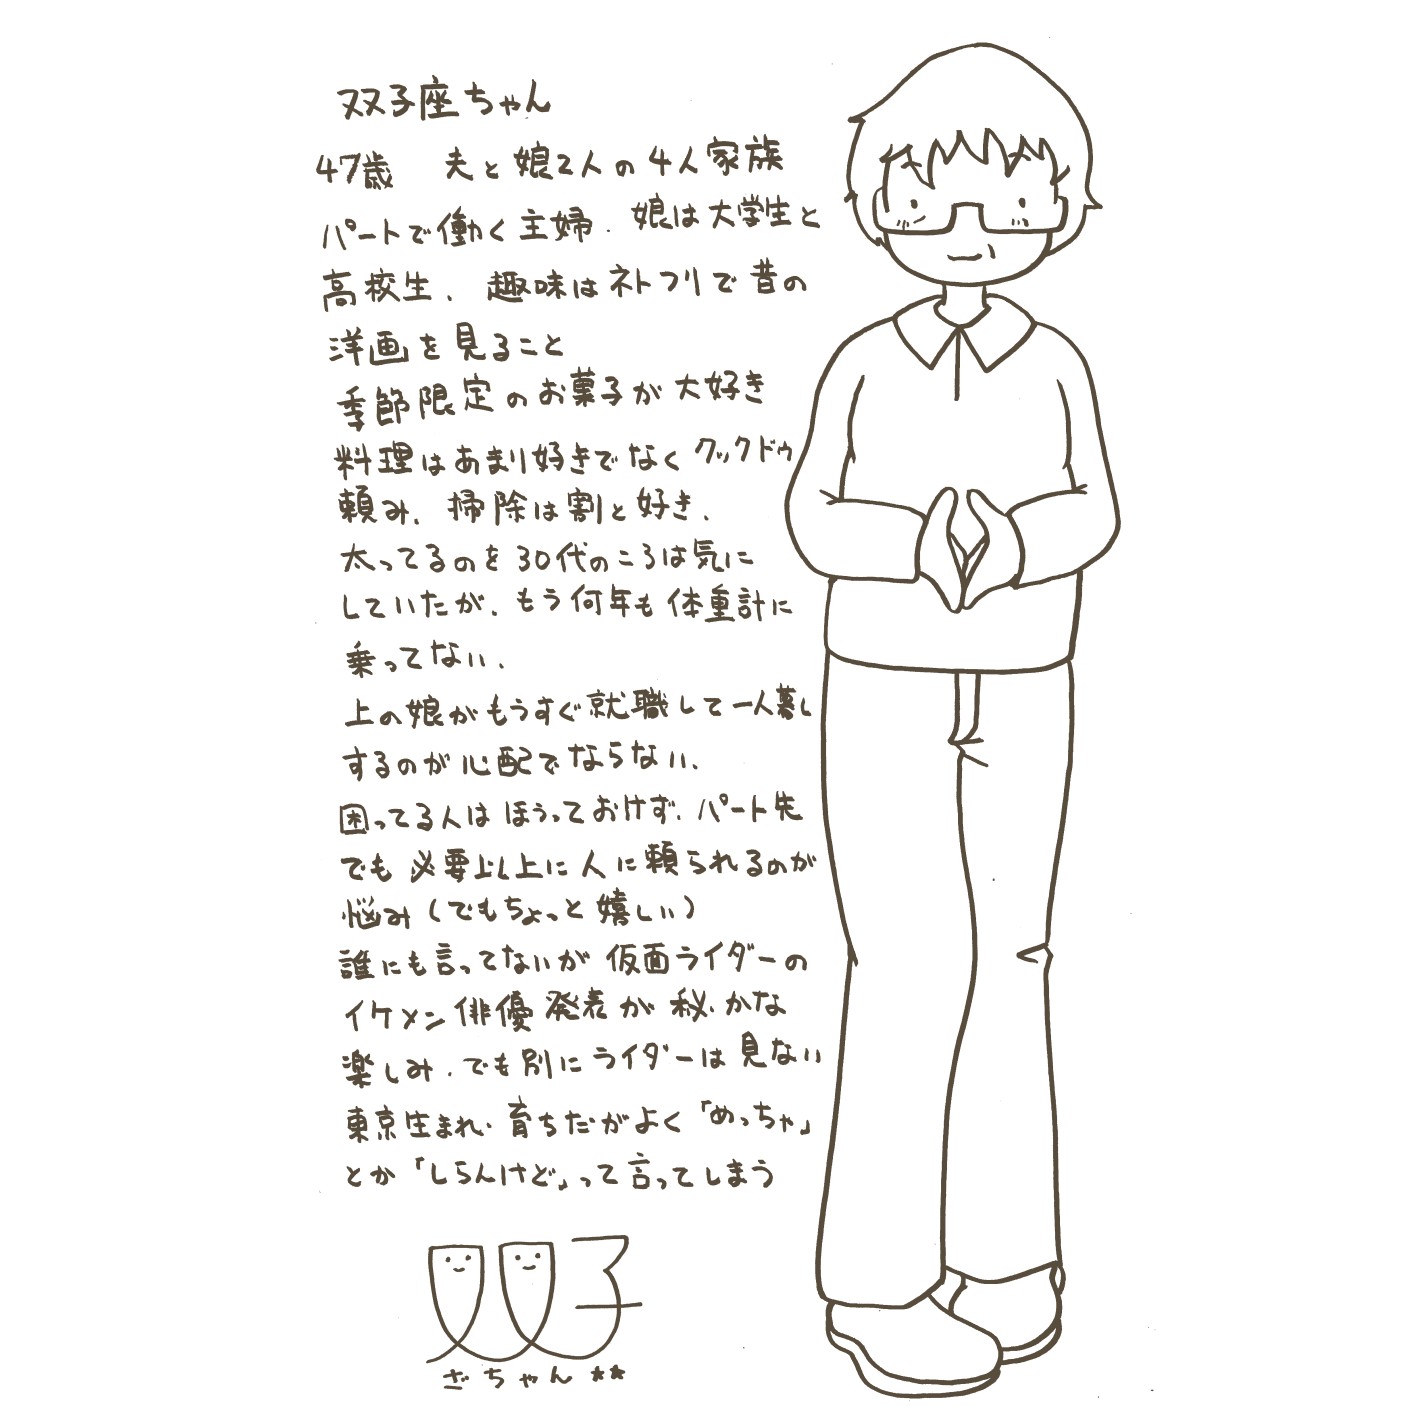 双子座ちゃん
47歳 夫と娘2人の4人家族
パートで働く主婦. 娘は大学生と
高校生. 趣味はネトフリで昔の
洋画を見ること
季節限定のお菓子が大好き
料理はあまり好きでなくクックドゥ
頼み. 掃除は割と好き.
太ってるのを30代のころは気に
していたが. もう何年も体重計に
乗ってない.
上の娘がもうすぐ就職して一人暮し
するのが心配でならない.
困ってる人はほうっておけず. パート先
でも必要以上に人に頼られるのが
悩み(でもちょっと嬉しい)
誰にも言ってないが仮面ライダーの
イケメン俳優発表が秘かな
楽しみ. でも別にライダーは見ない
東京生まれ. 育ちだがよく「めっちゃ」
とか「しらんけど」って言ってしまう
双子
ざちゃん**